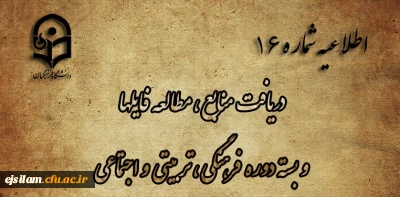 اطلاعیه شماره ۱۶
دانشگاه فرهنگیان
دریافت منابع ، مطالعه فایلها
و بسته دوره فرهنگی ، تربیتی و اجتماعی
ejsilam.cfu.ac.ir